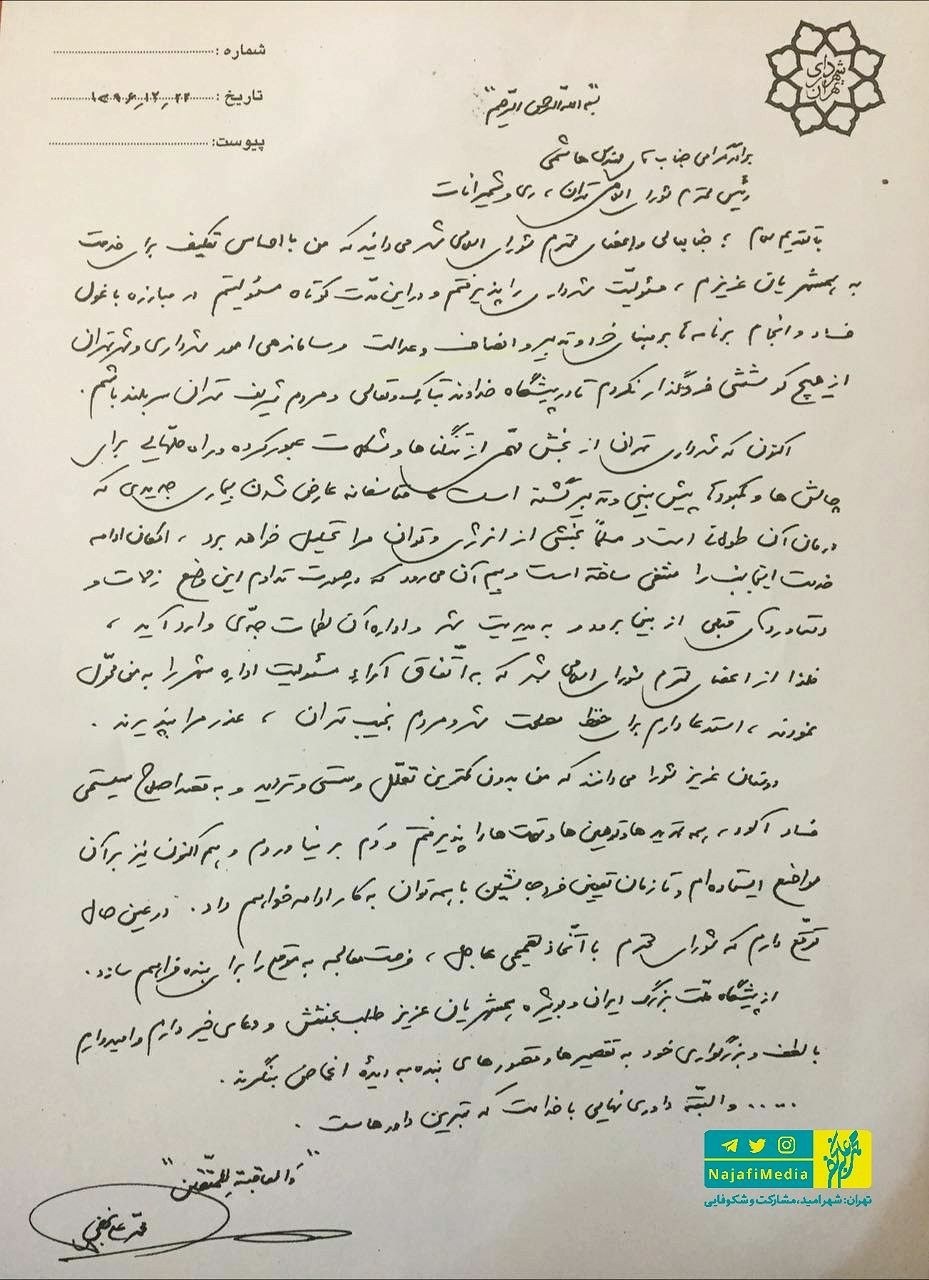 شماره :
تاریخ : ۱۳۹۶,۱۲,۲۲
پیوست:
شهرداری تهران
"بسم الله الرحمن الرحیم"
برادر گرامی جناب آقای مهندس هاشمی
رئیس محترم شورای اسلامی تهران، ری و شمیرانات
با تقدیم سلام ؛ جنابعالی و اعضای محترم شورای اسلامی شهر می‌دانید که من با احساس تکلیف برای خدمت
به همشهریان عزیزم ، مسئولیّت شهرداری را پذیرفتم و در این مدّت کوتاه مسئولیتم در مبارزه با غول
فساد و انجام برنامه‌ها بر مبنای خرد و تدبیر و انصاف و عدالت و ساماندهی امور شهرداری و شهر تهران
از هیچ کوششی فروگذار نکردم تا در پیشگاه خداوند تبارک و تعالی و مردم شریف تهران سربلند باشم .
اکنون که شهرداری تهران از بخش مهمّی از تنگناها و مشکلات عبور کرده و راه حلهایی برای
چالش ها و کمبودها پیش بینی و تدبیر گشته است ، متأسفانه عارض شدن بیماری جدیدی که
درمان آن طولانی است و مسلماً بخشی از انرژی و توان مرا تحلیل خواهد برد ، امکان ادامه
خدمت اینجانب را منتفی ساخته است و بیم آن می‌رود که در صورت تداوم این وضع زحمات و
دستاوردهای قبلی از بین برود و به مدیریت شهر و اداره آن لطمات جدّی وارد آید ،
فلذا از اعضای محترم شورای اسلامی شهر که به اتّفاق آراء مسئولیت اداره شهر را به من محوّل
نمودند ، استدعا دارم برای حفظ مصلحت شهر و مردم نجیب تهران ، عذر مرا بپذیرند .
دوستان عزیز شورا می‌دانند که من بدون کمترین تعلّل و سستی و تردید و به قصد اصلاح سیستمی
فساد آلود ، همه تهدیدها و توهین ها و تهمت ها را پذیرفتم و دَم بر نیاوردم و هم اکنون نیز بر آن
مواضع ایستاده‌ام و تا زمان تعیین فرد جانشین با همه توان به کار ادامه خواهم داد . در عین حال
توقّع دارم که شورای محترم با اتّخاذ تصمیمی عاجل ، فرصت معالجه به موقع را برای بنده فراهم سازد .
از پیشگاه ملّت بزرگ ایران و بویژه همشهریان عزیز طلب بخشش و دعای خیر دارم و امیدوارم
با لطف و بزرگواری خود به تقصیرها و قصورهای بنده به دیدۀ اغماض بنگرند .
..... و البتّه داوری نهایی با خداست که بهترین داورهاست .
"وَالعاقبة لِلمتّقین"
محمّد علی نجفی
NajafiMedia
تهران: شهر امید، مشارکت و شکوفایی